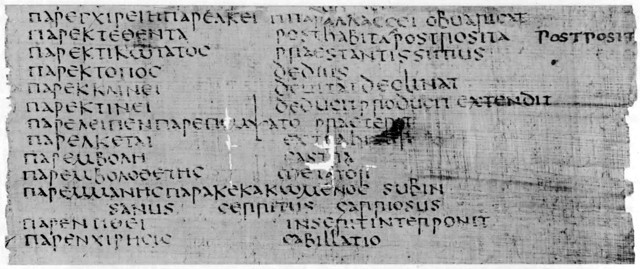 ΠΑΡΕΓΧΙΡΕΙ ΠΑΡΕΛΚΕΙ
ΠΑΡΕΚΤΕΘΕΝΤΑ POSTHABITA POSTPOSITA POSTPOSIT
ΠΑΡΕΚΤΙΚΩΤΑΤΟΣ PRAESTANTISSIMUS
ΠΑΡΕΚΤΟΠΟΣ DEVIUS
ΠΑΡΕΚΚΛΙΝΕΙ DEVITAT DECLINAT
ΠΑΡΕΚΤΙΝΕΙ DEDUCIT PRODUCIT EXTENDIT
ΠΑΡΕΛΕΙΠΕΝ
ΠΑΡΕΛΚΕΤΑΙ
ΠΑΡΕΜΒΟΛΗ CASTRA
ΠΑΡΕΜΒΟΛΟΘΕΤΗΣ METATOR
ΠΑΡΕΜΜΑΝΗΣ ΠΑΡΑΚΕΚΑΚΩΜΕΝΟΣ SUBIN
SANUS CERRITUS CARRIOSUS
ΠΑΡΕΝΤΙΘΕΙ INSERIT INTERPONIT
ΠΑΡΕΝΧΙΡΗΣΙΣ CABILLATIO